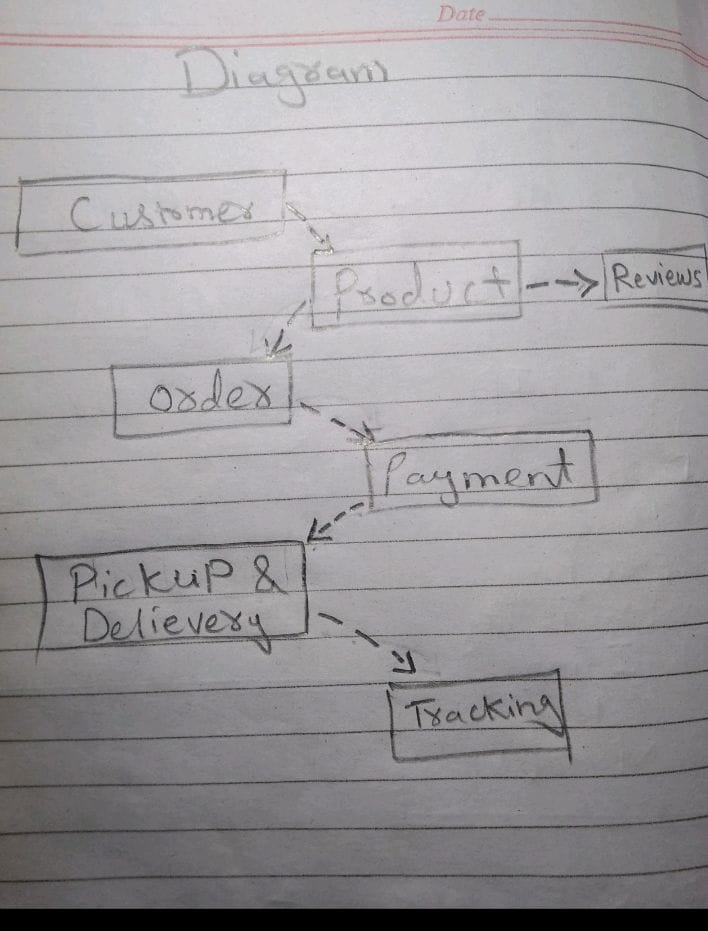 Date
Diagram
Customer
Product
Reviews
order
Payment
Pickup &
Delievery
Tracking